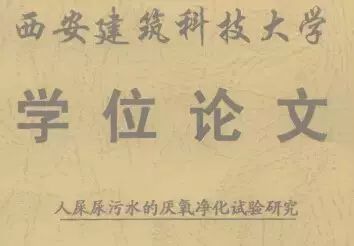 西安建筑科技大学
学位论文
人屎尿污水的厌氧净化试验研究